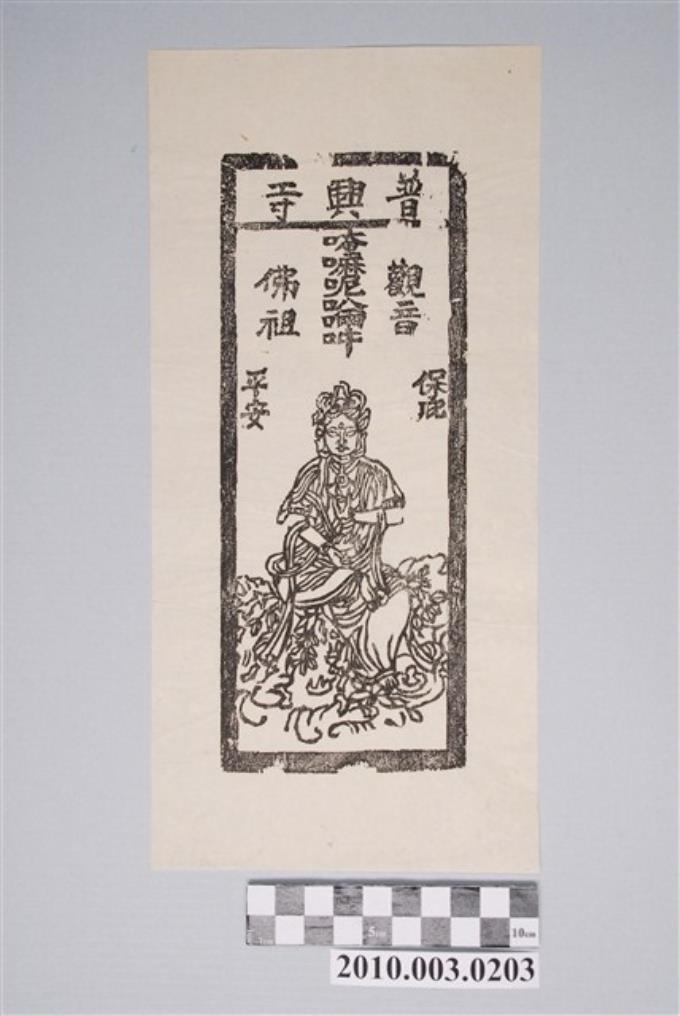 普興寺
觀音
嘛呢
佛祖
保庇
平安
5cm
10cm
2010.003.0203